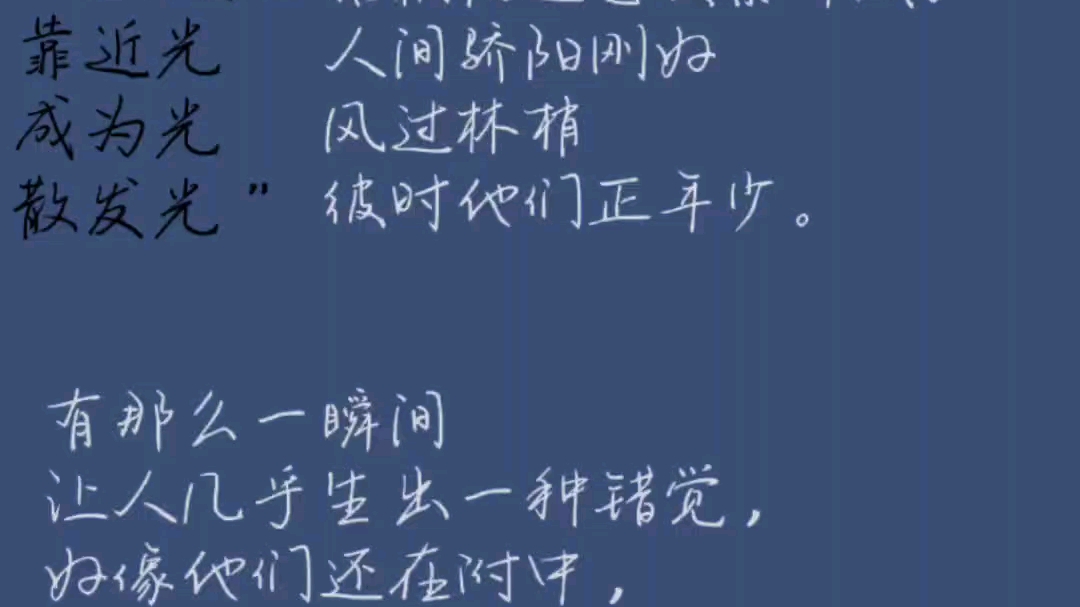 靠近光
成为光
散发光”
人间骄阳刚好
风过林梢
彼时他们正年少。
有那么一瞬间
让人几乎生出一种错觉，
好像他们还在附中，